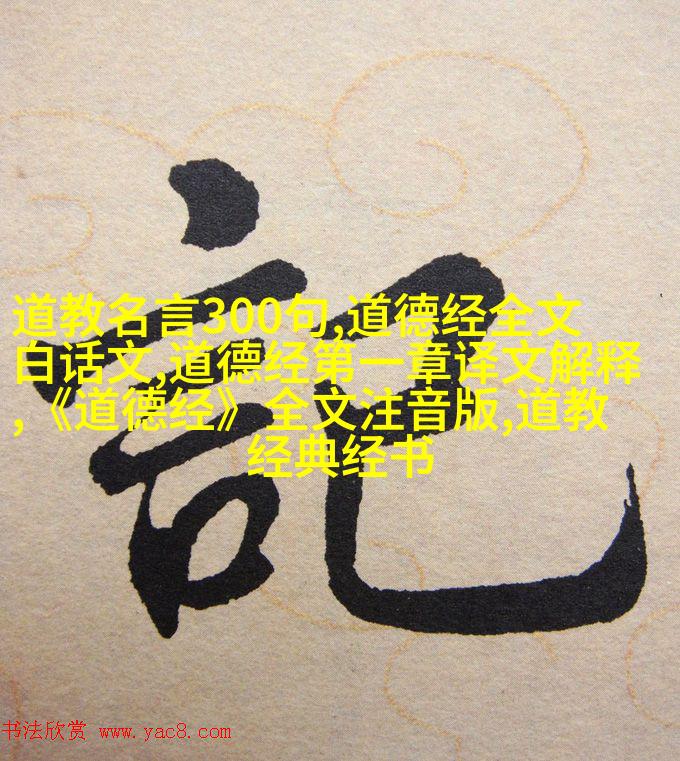 記
道教名言300句,道德经全文
白话文,道德经第一章译文解释
,《道德经》 全文注音版,道教
经典经书
书法欣赏 www.yac8.com